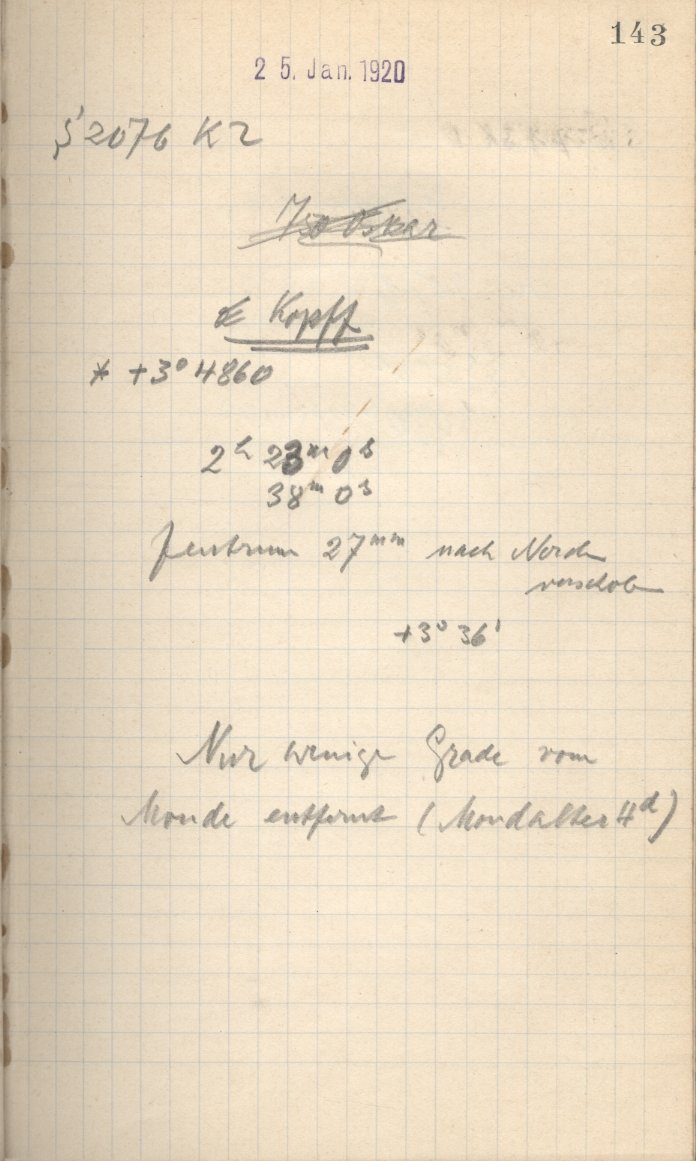 143
25. Jan. 1920
§ 2076 K2
750 Oskar
Kopff
* +3° 4860
2h 23m 0s
38m 0s
Zentrum 27mm nach Norden
verschoben
+3° 36'
Nur wenige Grade vom
Monde entfernt (Mondalter 4d)